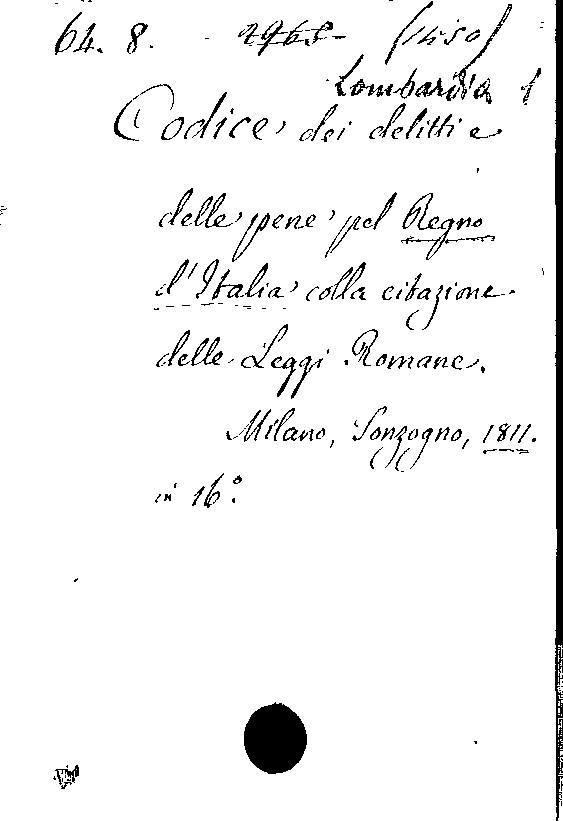 64. 8. 2968 (1450)
Lombardia 1
Codice dei delitti e
delle pene pel Regno
d'Italia colla citazione
delle Leggi Romane.
Milano, Sonzogno, 1811.
in 16°.